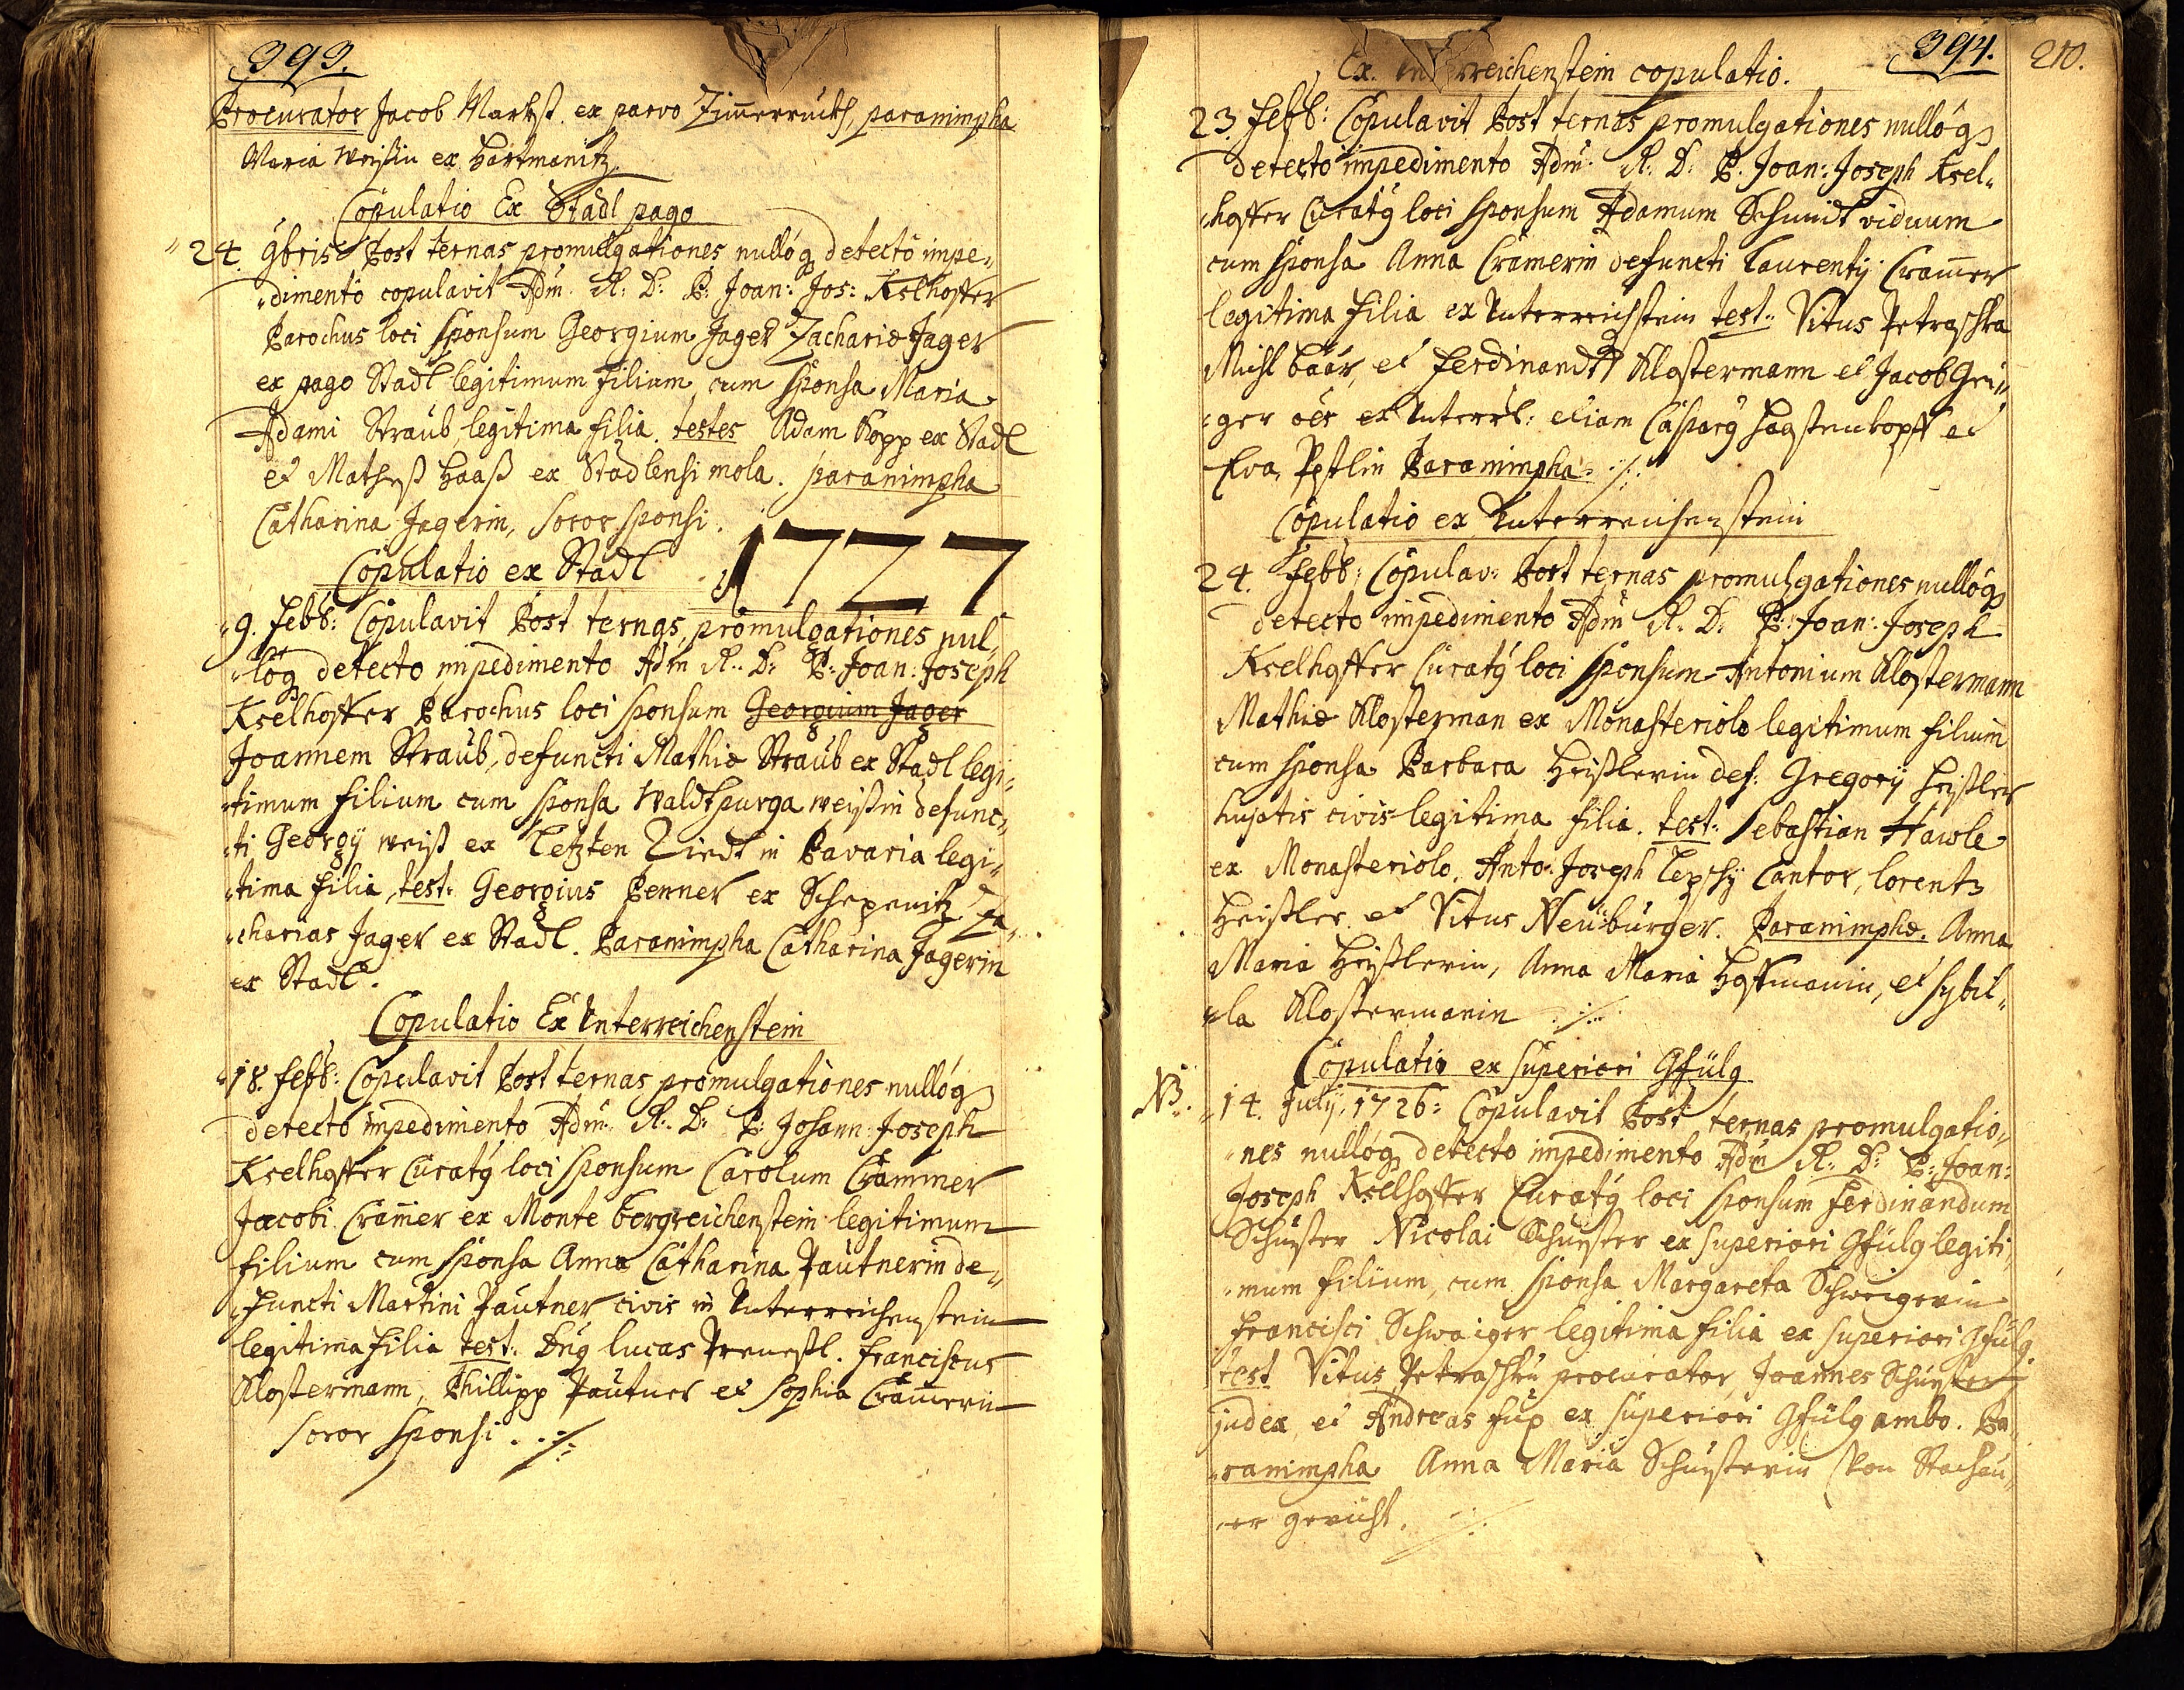 393.
Procurator Jacob Markst. ex parvo Zim̄erruck, paranimpha
Maria Weissin ex Hartmanitz.
Copulatio Ex Stadl pago
24. 9bris Post ternas promulgationes nullóq detectó impe„
„dimentó copulavit Adm. R. D. P. Joan: Jos: Kselhoffer
Parochus loci sponsum Georgium Jager Zachariæ Jager
ex pago Stadl legitimum filium cum sponsa Maria
Adami Straub legitima filia. testes Adam Kopp ex Stadl
et Mathess Haass ex Stadlensi mola. paranimpha
Catharina Jagerin, soror sponsi.
1727
Copulatio ex Stadl
9. Febb: Copulavit Post ternas promulgationes nul„
„lóq detecto impedimento Adm R. D. P. Joan: Joseph
Kselhoffer Parochus loci sponsum Georgium Jager
Joannem Straub, defuncti Mathiæ Straub ex Stadl legi„
„timum filium cum sponsa Waldpurga Weissin defunc„
„ti Georgÿ Weiss ex Letzten in Bavaria legi„
„tima filia, test: Georgius Penner ex Za„
„charias Jager ex Stadl. Paranimpha Catharina Jagerin
ex Stadl.
Copulatio Ex Unterreichenstein
18. Febb: Copulavit Post ternas promulgationes nullóq
detectó impedimento Adm. R. D. P. Johann: Joseph
Kselhoffer Curatq loci sponsum Carolum Crammer
Jacobi Cram̄er ex Monte bergreichenstein legitimum
filium cum sponsa Anna Catharina Pautnerin de„
„functi Martini Pautner civis in Unterreichenstein
legitima filia test: Dnq Lucas Franciscus
Klostermann, Phillipp Pautner et Sophia Cram̄erin
soror sponsi ./.
394. 210.
Ex. Unterreichenstein copulatio.
23. Febb: Copulavit Post ternas promulgationes nullóq
detectó impedimento Adm. R. D. P. Joan: Joseph Ksel„
„hoffer Curatq loci sponsum Adamum Schmidt viduum
cum sponsa Anna Cramerin defuncti Laurentÿ Cram̄er
legitima filia ex Unterreichstein test: Vitus Petraschka
Michl Bäär, et Ferdinandt Klostermann et Jacob Gei„
„ger ex Unterr: etiam Casparq et
Eva Paranimpha ./.
Copulatio ex Unterreichenstein
24. Febb: Copulav: Post ternas promulgationes nullóq
detecto impedimento Adm R. D. P. Joan: Joseph
Kselhoffer Curatq loci sponsum Antonium Klostermann
Mathiæ Klosterman ex Monasteriolo legitimum filium
cum sponsa Barbara Heisslerin def: Gregorÿ Heissler
hujatis civis legitima filia. test: Sebastian Hawle
ex Monasteriolo, Anto: Joseph Lepschÿ Cantor, Lorentz
Heissler et Vitus Neuburger. Paranimphæ. Anna
Maria Heisslerin, Anna Maria Hoffmanin, et Sybil„
„la Klostermanin ./.
Copulatio ex superiori Gfülg
NB. 14. Julÿ 1726: Copulavit Post ternas promulgatio„
„nes nullóq detecto impedimento Adm R. D. P. Joan:
Joseph Kselhoffer Curatq loci sponsum Ferdinandum
Schuster Nicolai Schuster ex superiori Gfülg legiti„
„mum filium, cum sponsa Margareta Schweigerin
Francisci Schwaiger legitima filia ex superiori Gfülg.
test Vitus Petraschku procurator, Joannes Schuster
judex et Andreas Fux ex superiori Gfülg ambo. Pa„
„ranimpha Anna Maria Schusterin von Stachau„
„er gericht. ./.